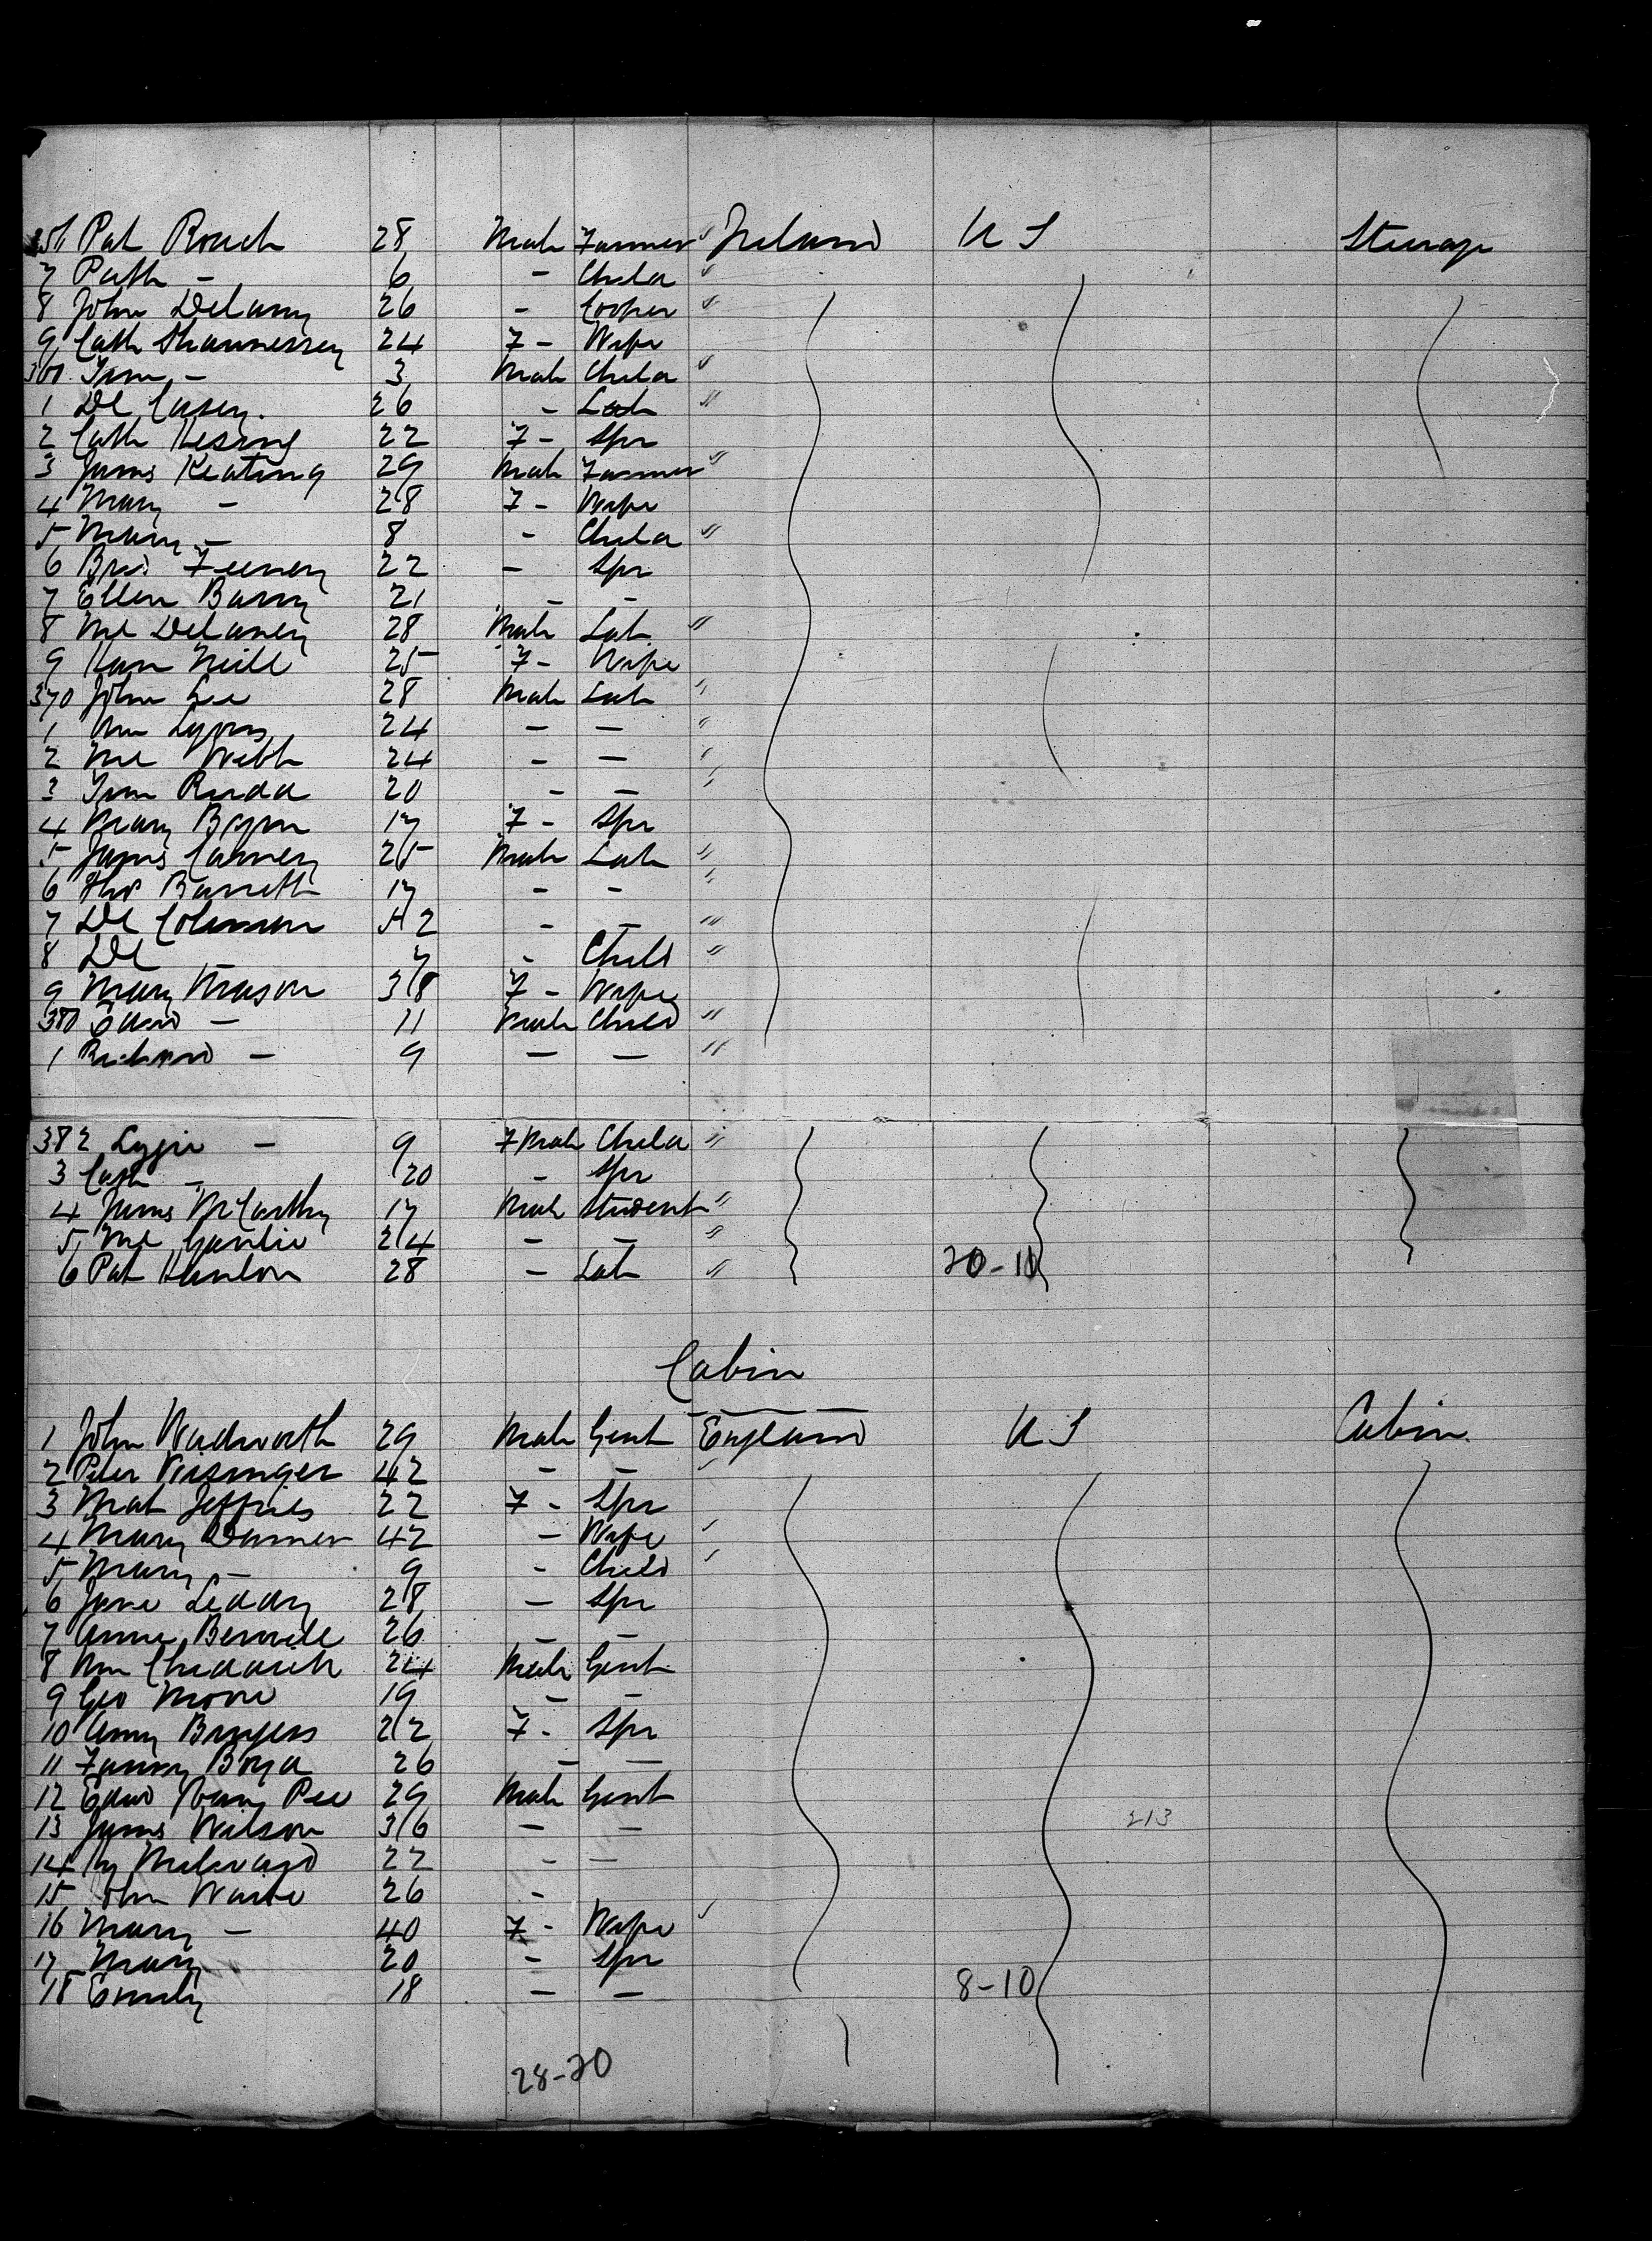 356 Pat Roach 28 Male Farmer " Ireland U S Steerage
7 Path - 6 - Child "
8 John Delany 26 - Cooper "
9 Cath Shannessey 24 F - Wife
360 Tim - 3 Male Child "
1 Dl Casey 26 - Lab "
2 Cath 22 F - Spr
3 James Keating 29 Male Farmer "
4 Mary - 28 F - Wife
5 Mary - 8 - Child "
6 Brid Feeney 22 - Spr
7 Ellen Barry 21 - -
8 Ml Delaney 28 Male Lab "
9 Neill 25 F - Wife
370 John Lee 28 Male Lab "
1 Wm Lyons 24 - - "
2 Ml Webb 24 - - "
3 Tim 20 - - "
4 Mary Byrne 17 F - Spr
5 James Canney 25 Male Lab "
6 Thos Barrett 17 - - "
7 Dl Coleman 52 - - "
8 Dl - 7 - Child "
9 Mary Mason 38 F - Wife
380 Edwd - 11 Male Child "
1 Richard - 9 - - "
382 Lizzie - 9 F Male Child "
3 Cath - 20 - Spr
4 James McCarthy 17 Male Student "
5 Ml 24 - - "
6 Pat Hanlon 28 - Lab " 20-10
Cabin
1 John Wadworth 29 Male Gent England U S Cabin
2 Peter 42 - -
3 Mat Jeffries 22 F - Spr
4 Mary 42 - Wife
5 Mary - 9 - Child
6 Jane Leddy 28 - Spr
7 Annie 26 - -
8 Wm 24 Male Gent
9 Geo Moore 19 - -
10 Amy Burgess 22 F - Spr
11 Fanny Boyd 26 - -
12 Edwd Pee 29 Male Gent
13 James Wilson 36 - - 213
14 Hy Milward 22 - -
15 John Waite 26 -
16 Mary - 40 F - Wife
17 Mary 20 - Spr
18 Emily 18 - - 8-10
28-20